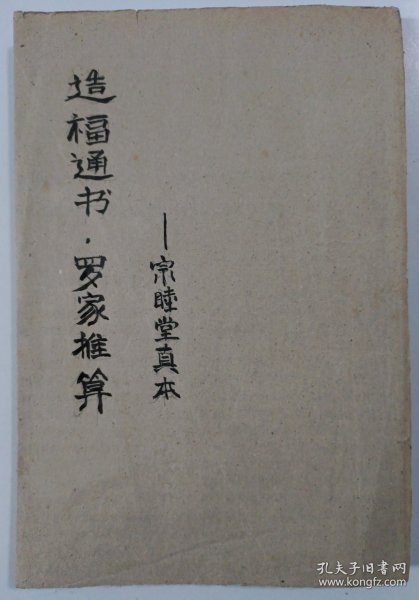 造福通书·罗家推算
—宗睦堂真本
孔夫子旧书网
www.kongfz.com